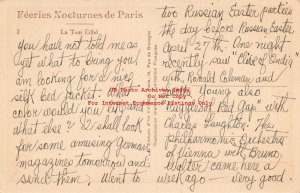 Féeries Nocturnes de Paris
2
La Tour Eiffel
you had not told me as
yet what to bring you,
am looking for a nice
silk bed jacket. What
color would you like and
what else? I shall look
for some amusing German
magazines tomorrow and
send them. Went to
two Russian Easter parties
the day before Russian Easter
April 27th. One night
recently saw "Clive of India"
with Ronald Colman and
Young also
"Ruggles of Red Gap" with
Charles Laughton. The
Philharmonic Orchestra
of Vienna with Bruno
Walter came here a
week ago – very good.